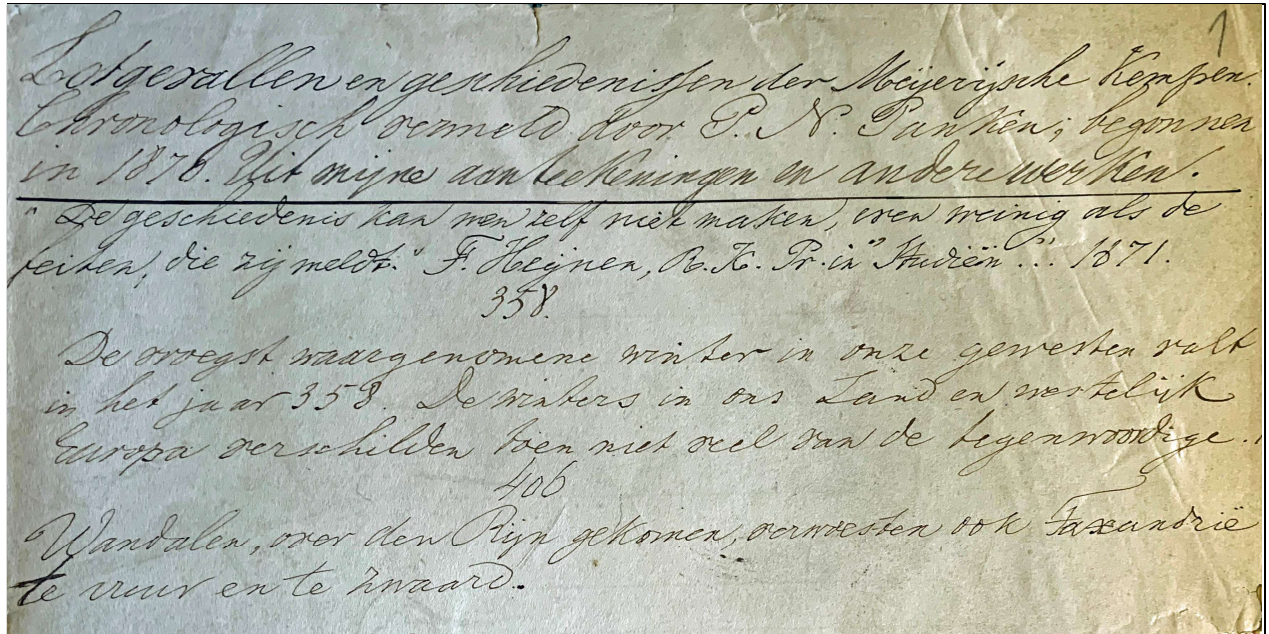 1
Lotgevallen en geschiedenissen der Meijerijsche Kempen.
Chronologisch vermeld door P. N. Panken; begonnen
in 1870. Uit mijne aanteekeningen en andere werken.
"De geschiedenis kan men zelf niet maken, even weinig als de
feiten, die zij meldt." F. Heijnen, R. K. Pr. in "Studiën"... 1871.
358.
De vroegst waargenomene winter in onze gewesten valt
in het jaar 358. De winters in ons Land en westelijk
Europa verschilden toen niet veel van de tegenwoordige.
406
Wandalen, over den Rijn gekomen, verwoesten ook Taxandrië
te vuur en te zwaard.